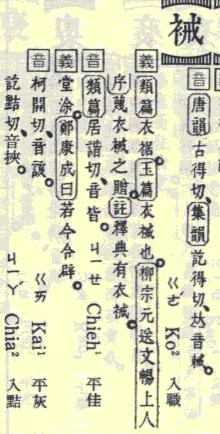 裓
音 唐韻古得切、集韻訖得切、𠀤音祴。 ㄍㄜ Ko² 入職
義 類篇衣裾。玉篇衣裓也。柳宗元送文暢上人
序蕆衣裓之贈。註釋典有衣裓。
音 類篇居諧切、音皆。 ㄐㄧㄝ Chieh¹ 平佳
義 堂涂。鄭康成曰若今令甓。
音 柯開切、音該。 ㄍㄞ Kai¹ 平灰
訖黠切、音揳。 ㄐㄧㄚ Chia² 入黠